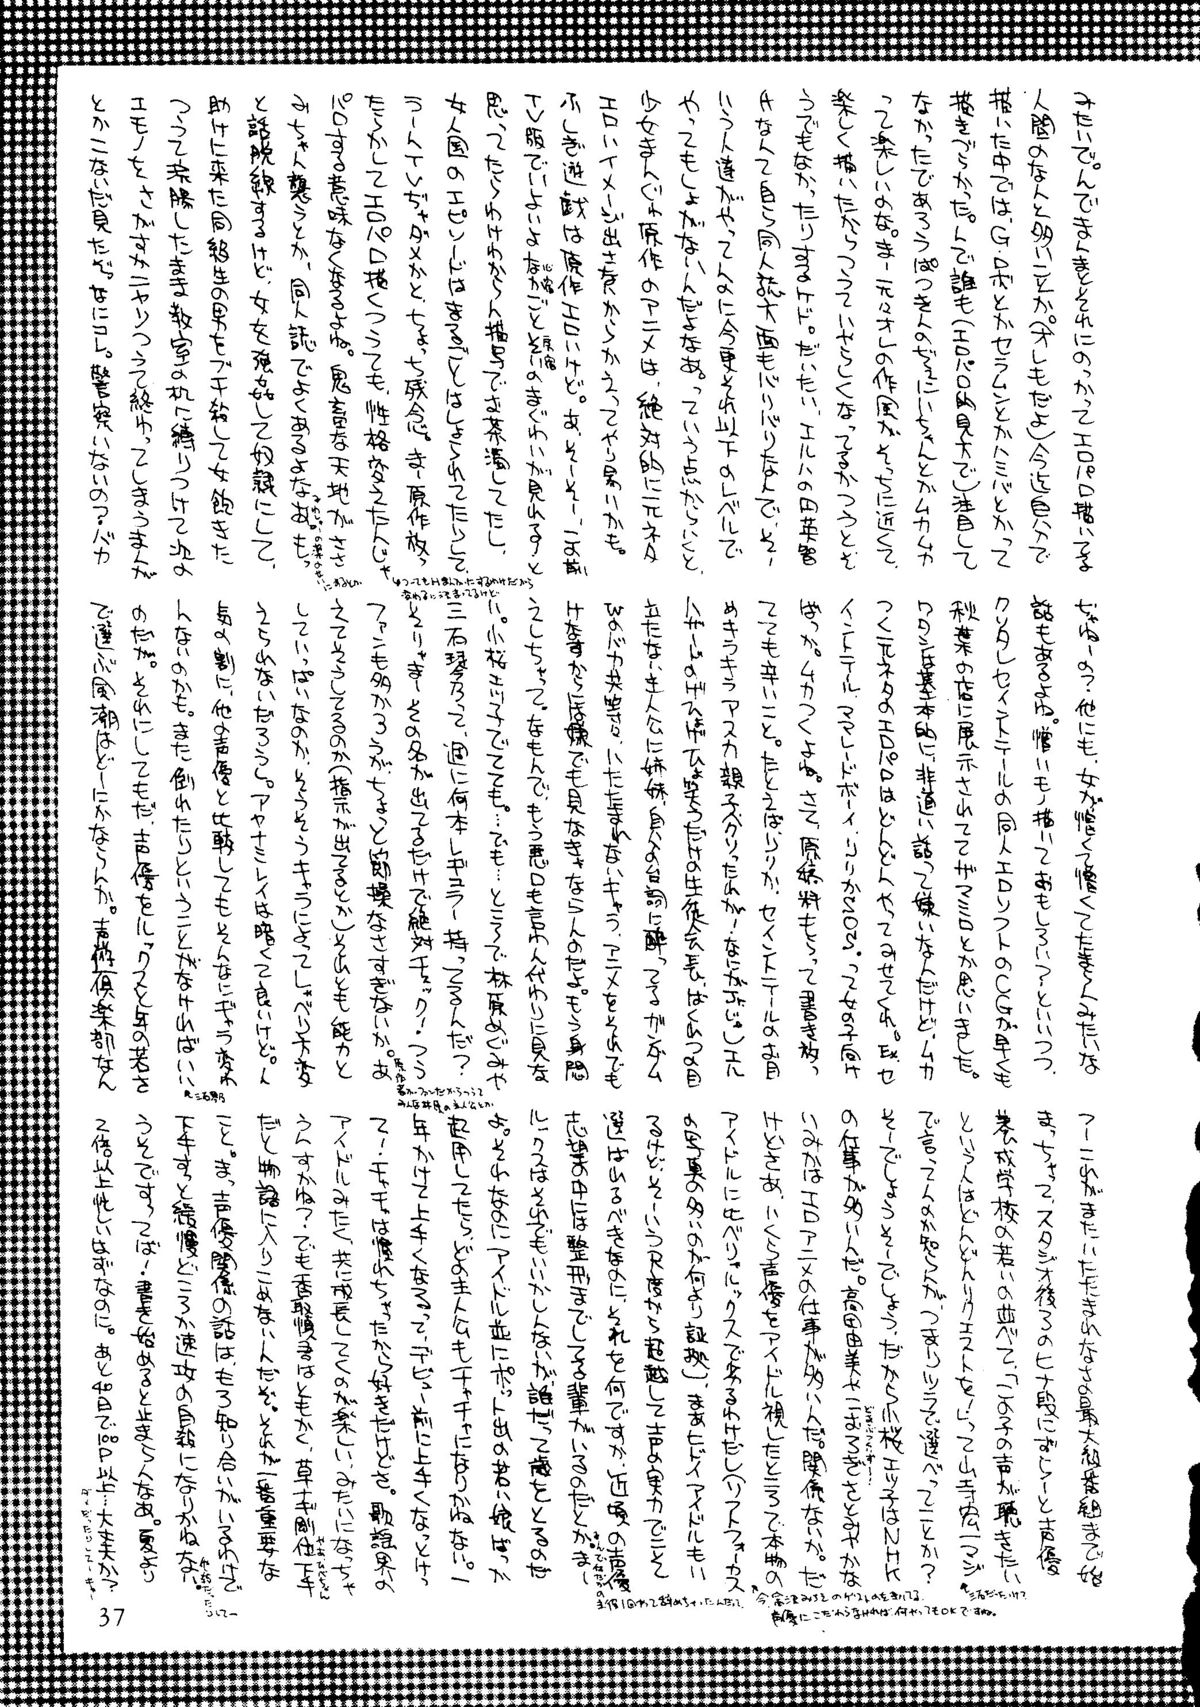 みたいで。んでまんまとそれにのっかってエロパロ描いてる
人間のなんと多いことか。(オレもだよ)今迄自分で
描いた中では、GロボとかセラムンとかハミパとかTって
描きづらかった。んで誰も(エロパロ的見方で)注目して
なかったであろう
って楽しいのな。ま一元々オレの作風がそっちに近くて、
楽しく描いたからっつうていやらしくなってるかっつうとそ
うでもなかったりするけど。だいたい、エルハの田英智
Hなんて自ら同人誌方面もバリバリなんで、そー
いう人達がやってんのに今更それ以下のレベルで
やってもしょがないんだよなあ。っていう点からいくと、
少女まんが原作のアニメは、絶対的に元ネタ
エロいイメージ出さないからかえってやり易いかも。
ふしぎ遊戯は原作エロいけど。あ、そーそー、こお前
TV版でいよいよ
思ってたらわけわからん描写でお茶濁してたし、
女人国のエピソードはまるごとはしょられてたらしくて、
うーんTVぢゃダメかと、ちょっち残念。まー原作
たらかしてエロパロ描くっつうても、性格変えたんじゃ
パロする意味なくなるよね。鬼畜な天地がささ
みちゃん襲うとか、同人誌でよくあるよなあ。もっ
と話脱線するけど、女女強姦して奴隷にして、
助けに来た同級生の男をブチ殺して女飽きた
っつうて浣腸したまま教室の机に縛りつけて次の
エモノを、さがすかニヤリっつうて終わってしまうまんが
とかこないだ見たぞ。なにコレ。警察いないの?バカ
ぢゃねーの?他にも、女が憎くて憎くてたまらんみたいな
話もあるよね。憎いモノ描いておもしろい?といいつつ、
クリクレセイントテールの同人エロソフトのCGが早くも
秋葉の店に展示されててザマミロとか思いました。
ワタシは基本的に非道い話って嫌いなんだけど、ムカ
つく元ネタのエロパロはどんどんやってみせてくれ。Ex.セ
イントテール、ママレードボーイ、りりかSOS。って女の子向け
ばっか。ムカつくよね。さて、原稿料もらって書き放っ
てても辛いこと。たとえばりりか、セイントテールのお目
めキラキラアスカ親子
ハザードのげひょげひょ笑うだけの生徒会長、ばくれつの目
立たない主人公に姉妹、自分の台詞に酔ってるガンダム
Wのバカ共等々、いたたまれないキャラ、アニメをそれでも
けなすからには嫌でも見なきゃならんのだよ。もう身悶
えしちゃって。なもんで、もう悪口も言わん代わりに見な
い。小桜エツ子でてても。…でも…ところで林原めぐみや
三石琴乃って、週に何本レギュラー持ってるんだ?
とりまーその名が出てるだけで絶対チェック!っつう
ファンも多かろうが、ちょっと節操なさすぎないか。あ
えてそうしてるのか(指示が出てるとか)それとも能力と
していっぱいなのか、そうそうキャラによってしゃべり方変
えられないだろうし。アヤナミレイは暗くて良いけど。人
気の割に、他の声優と比較してもそんなにギャラ変わ
んないのかも。また倒れたりということがなければいい
のだが。それにしてもだ、声優をルックスと年の若さ
で選ぶ風潮はどーにかならんか。声優倶楽部なん
つーこれがまたいたたまれなさの最大級番組まで始
まっちゃって、スタジオ後ろのヒナ段にずらーと声優
養成学校の若いの並べて、「この子の声が聴きたい
という人はどんどんリクエストを!」って山寺宏一マジ
で言ってんのか知らんが、つまりツラで選べってことか?
そーでしょうそーでしょう、だから小桜エツ子はNHK
の仕事が多いんだ。高田由美やこおろぎさとみやかな
いみかはエロアニメの仕事が多いんだ。関係ないか。だ
けどさあ、いくら声優をアイドル視したところで本物の
アイドルに比べりゃルックスで劣るわけだし(ソフトフォーカス
の写真の多いのが何より証拠)、まあヒドイアイドルもい
るけど、そーいう尺度から超越して声の実力でこそ
選ばれるべきなのに、それを何ですか、近頃の声優
志望の中には整形までしてる輩がいるのだとか。ま一
ルックスはそれでもいいかしんないが、誰だって歳をとるのだ
よ。それなのにアイドル並にポット出の若い娘ばっか
起用してたら、どの主人公もチャチャになりかねない。一
年かけて上手くなるって、デビュー前に上手くなっとけっ
て!チャチャは慣れちゃったから好きだけどさ。歌謡界の
アイドルみたく、共に成長してくのが楽しい、みたいになっちゃ
うんすかね?でも香取慎吾はともかく、草ナギ剛位下手
だと物語に入りこめないんだぞ。それが一番重要な
こと。ま、声優関係の話は、もろ知り合いがいるわけで
下手すっと緩慢どころか速攻の自殺になりかねな
うそですってば!書き始めると止まらんなあ。夏より
2倍以上忙しいはずなのに。あと40日で100P以上…大丈夫か?
三石琴乃
三石だったけ?
今、富沢みちるのゲスト
声優にこだわらなければ、何やってもOKですね。
37